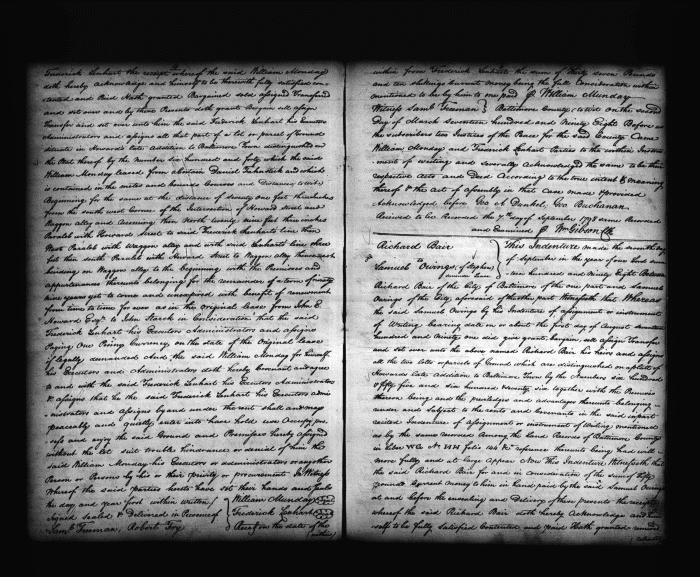 Frederick Lenhart the receipt whereof the said William Monday
doth hereby acknowledge and himself to be therewith fully satisfied con-
tented and Paid Hath granted Bargained sold assigned Transfered
and set over and by these Presents doth grant Bargain sell assign
Transfer and set over unto him the said Frederick Lenhart his Executors
Administrators and assigns all that part of a lot or parcel of Ground
situate in Howards late Addition to Baltimore Town distinguished on
the Plat thereof by the number six hundred and forty which the said
William Monday leased from a certain Daniel and which
is contained in the metes and bounds Courses and Distances to wit
Beginning for the same at the distance of seventy one feet three inches
from the south west corner of the Intersection of Howard street and
Waggon alley and running then North twenty nine feet three inches
Paralel with Howard Street to said Frederick Lenharts line then
West Paralel with Waggon alley and with said Lenharts line
then south Paralel with Howard Street to Waggon alley thence
binding on Waggon alley to the beginning with the Premises and
appurtenances thereunto belonging for the remainder of a term of ninety
nine years yet to come and unexpired with benefit of renewment
from time to time for ever as in the original lease from John E.
Howard Esqr to John Starck in Consideration that he the said
Frederick Lenhart his Executors Administrators and assigns
Paying One Penny Currency on the date of the Original lease
if legally demanded And the said William Monday for himself
his Executors and Administrators doth hereby Covenant and agree
to and with the said Frederick Lenhart his Executors Administrators
& assigns that he the said Frederick Lenhart his Executors admi-
-nistrators and assigns by and under the rent shall and may
peaceably and quietly enter into have hold use Occupy pos-
sess and enjoy the said Ground and Premises hereby assigned
without the let suit trouble hindrance or denial of him the
said William Monday his Executors or administrators or any other
Person or Persons by his or their privity or procurement In Witness
Whereof the said parties hereto have set their hands and seals
the day and year first within written
Signed sealed & Delivered in Presence of William Munday
Saml. Freeman, Robert Frederick Lenhart
Recd. on the date of the
within from Frederick Lenhart the sum of thirty seven Pounds
and ten shillings Current money being the full Consideration within
mentioned to be by him to me paid William Munday
Witness Saml. Freeman Baltimore County to wit on the second
Day of March seventeen hundred and Ninety Eight Before us
the subscribers two Justices of the Peace for the said County Came
William Monday and Frederick Lenhart Parties to the within Instru-
ments of writing and severally Acknowledged the same to be their
respective acts and Deed According to the true intent & meaning
thereof & the act of assembly in that Case made & provided
Acknowledged before Geo. Buchanan.
Received to be Recorded the 7th day of September 1798 same Recorded
and Examined Wm Gibson Clk
Richard Bair
to
Samuel Owings, of Stephen
This Indenture made the seventh day
of September in the year of our Lord seven-
-teen hundred and Ninety Eight Between
Richard Bair of the City of Baltimore of the one part and Samuel
Owings of the City aforesaid of the other part Witnesseth that Whereas
the said Samuel Owings by his Indenture of assignment or instrument
of Writing bearing date on or about the first day of August seventeen
hundred and Ninety one did give grant bargain sell assign Transfer
and set over unto the above named Richard Bair his heirs and assigns
all the two lots or parcels of Ground which are distinguished on a plat of
Howards late Addition to Baltimore Town by the numbers six hundred
& fifty five and six hundred & twenty six together with the Premises
thereon being and the priviledges and advantages thereunto belonging
under and Subject to the rents and Covenants in the said in part
recited Indenture of assignment or instrument of Writing mentioned
as by the same recorded among the Land Records of Baltimore County
in Liber WG No. HH folio reference thereunto being had will
more fully and at large appear Now this Indenture Witnesseth that
the said Richard Bair for and in consideration of the sum of fifty
pounds Current money to him in hand paid by the said
at and before the ensealing and Delivery of these presents the receipt
whereof the said Richard Bair doth hereby Acknowledge and him
self to be fully Satisfied Contented and paid Hath granted